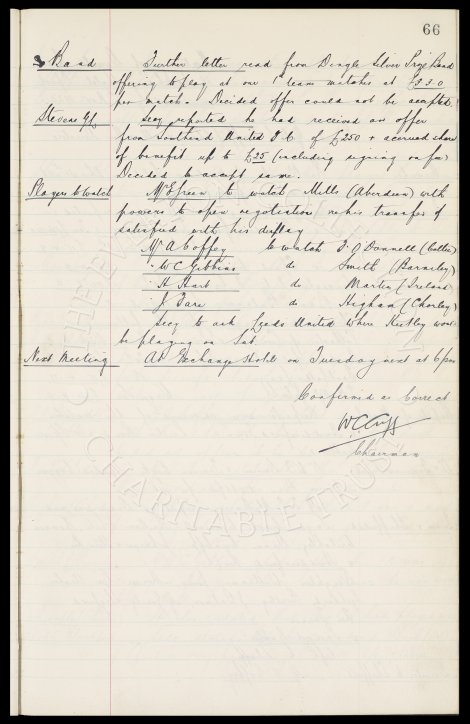 66
Band Further letter read from Dingle Silver Prize Band
offering to play at our 1st team matches at £3.3.0
per match. Decided offer could not be accepted.
Stevens G.L. Secy reported he had received an offer
from Southend United F.C. of £250 + accrued share
of benefit up to £25 (including signing on fee)
Decided to accept same.
Players to watch Mr E Green to watch Mills (Aberdeen) with
powers to open negotiation re his transfer if
satisfied with his display
Mr A Coffey to watch F. O'Donnell (Celtic)
" W C Gibbins do Smith (Barnsley)
" H Hart do Martin (Ireland)
" J Fare do Higham (Chorley)
Secy to ask Leeds United where would
be playing on Sat.
Next Meeting At Exchange Hotel on Tuesday next at 6 pm
Confirmed as Correct
W.C. Cuff
Chairman
THE EVERTON
CHARITABLE TRUST